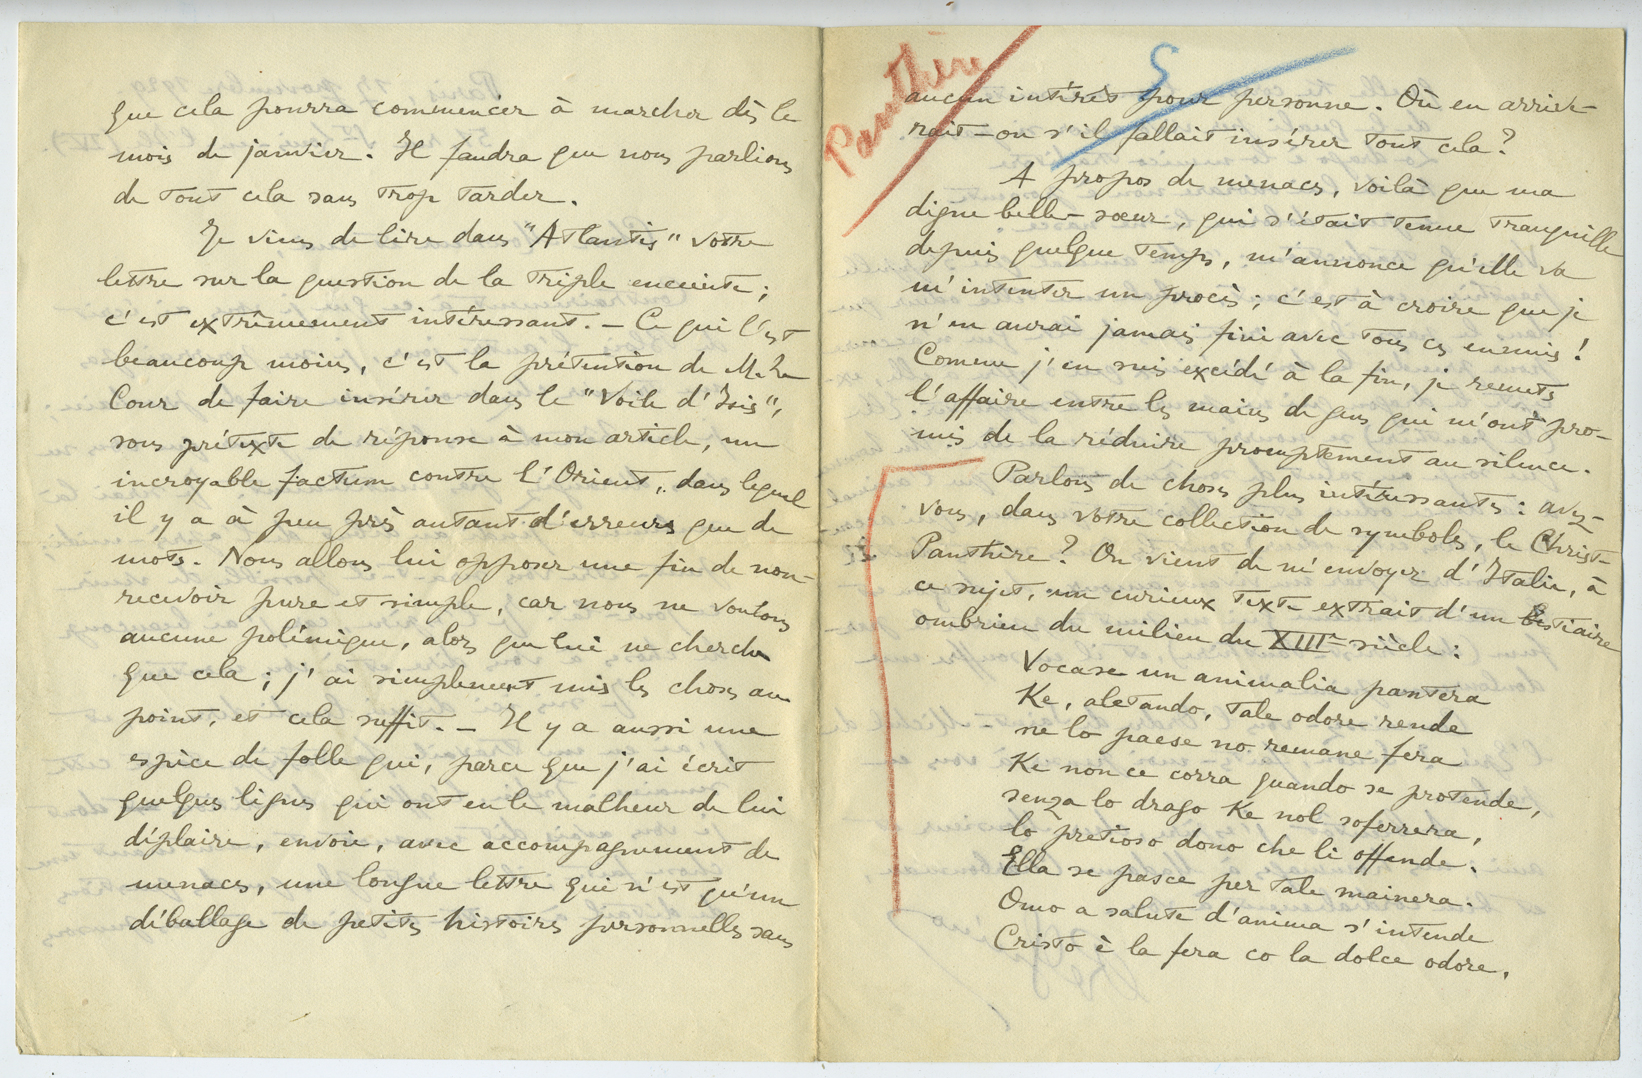 que cela pourra commencer à marcher dès le
mois de janvier. Il faudra que nous parlions
de tout cela sans trop tarder.
Je viens de lire dans "Atlantis" votre
lettre sur la question de la triple enceinte ;
c'est extrêmement intéressant. — Ce qui l'est
beaucoup moins, c'est la prétention de M. Le
Cour de faire insérer dans le "Voile d'Isis",
sous prétexte de réponse à mon article, un
incroyable factum contre l'Orient, dans lequel
il y a à peu près autant d'erreurs que de
mots. Nous allons lui opposer une fin de non-
recevoir pure et simple, car nous ne voulons
aucune polémique, alors que lui ne cherche
que cela ; j'ai simplement mis les choses au
point, et cela suffit. — Il y a aussi une
espèce de folle qui, parce que j'ai écrit
quelques lignes qui ont eu le malheur de lui
déplaire, envoie, avec accompagnement de
menaces, une longue lettre qui n'est qu'un
déballage de petites histoires personnelles sans
Panthère
5
aucun intérêt pour personne. Où en arrive-
rait-on s'il fallait insérer tout cela ?
A propos de menaces, voilà que ma
digne belle-sœur, qui s'était tenue tranquille
depuis quelque temps, m'annonce qu'elle va
m'intenter un procès ; c'est à croire que je
n'en aurai jamais fini avec tous ces ennuis !
Comme j'en suis excédé à la fin, je remets
l'affaire entre les mains de gens qui m'ont pro-
mis de la réduire promptement au silence.
Parlons de choses plus intéressantes : avez-
vous, dans votre collection de symboles, le Christ-
Panthère ? On vient de m'envoyer d'Italie, à
ce sujet, un curieux texte extrait d'un Bestiaire
ombrien du milieu du XIIIe siècle :
Vocase un animalia pantera
Ke, aletando, tale odore rende
ne lo paese no remane fera
Ke non ce corra quando se protende,
senza lo drago Ke nol soferrera,
lo pretioso dono che li offende.
Ella se pasce per tale mainera.
Omo a salute d'anima s'intende
Cristo è la fera co la dolce odore,